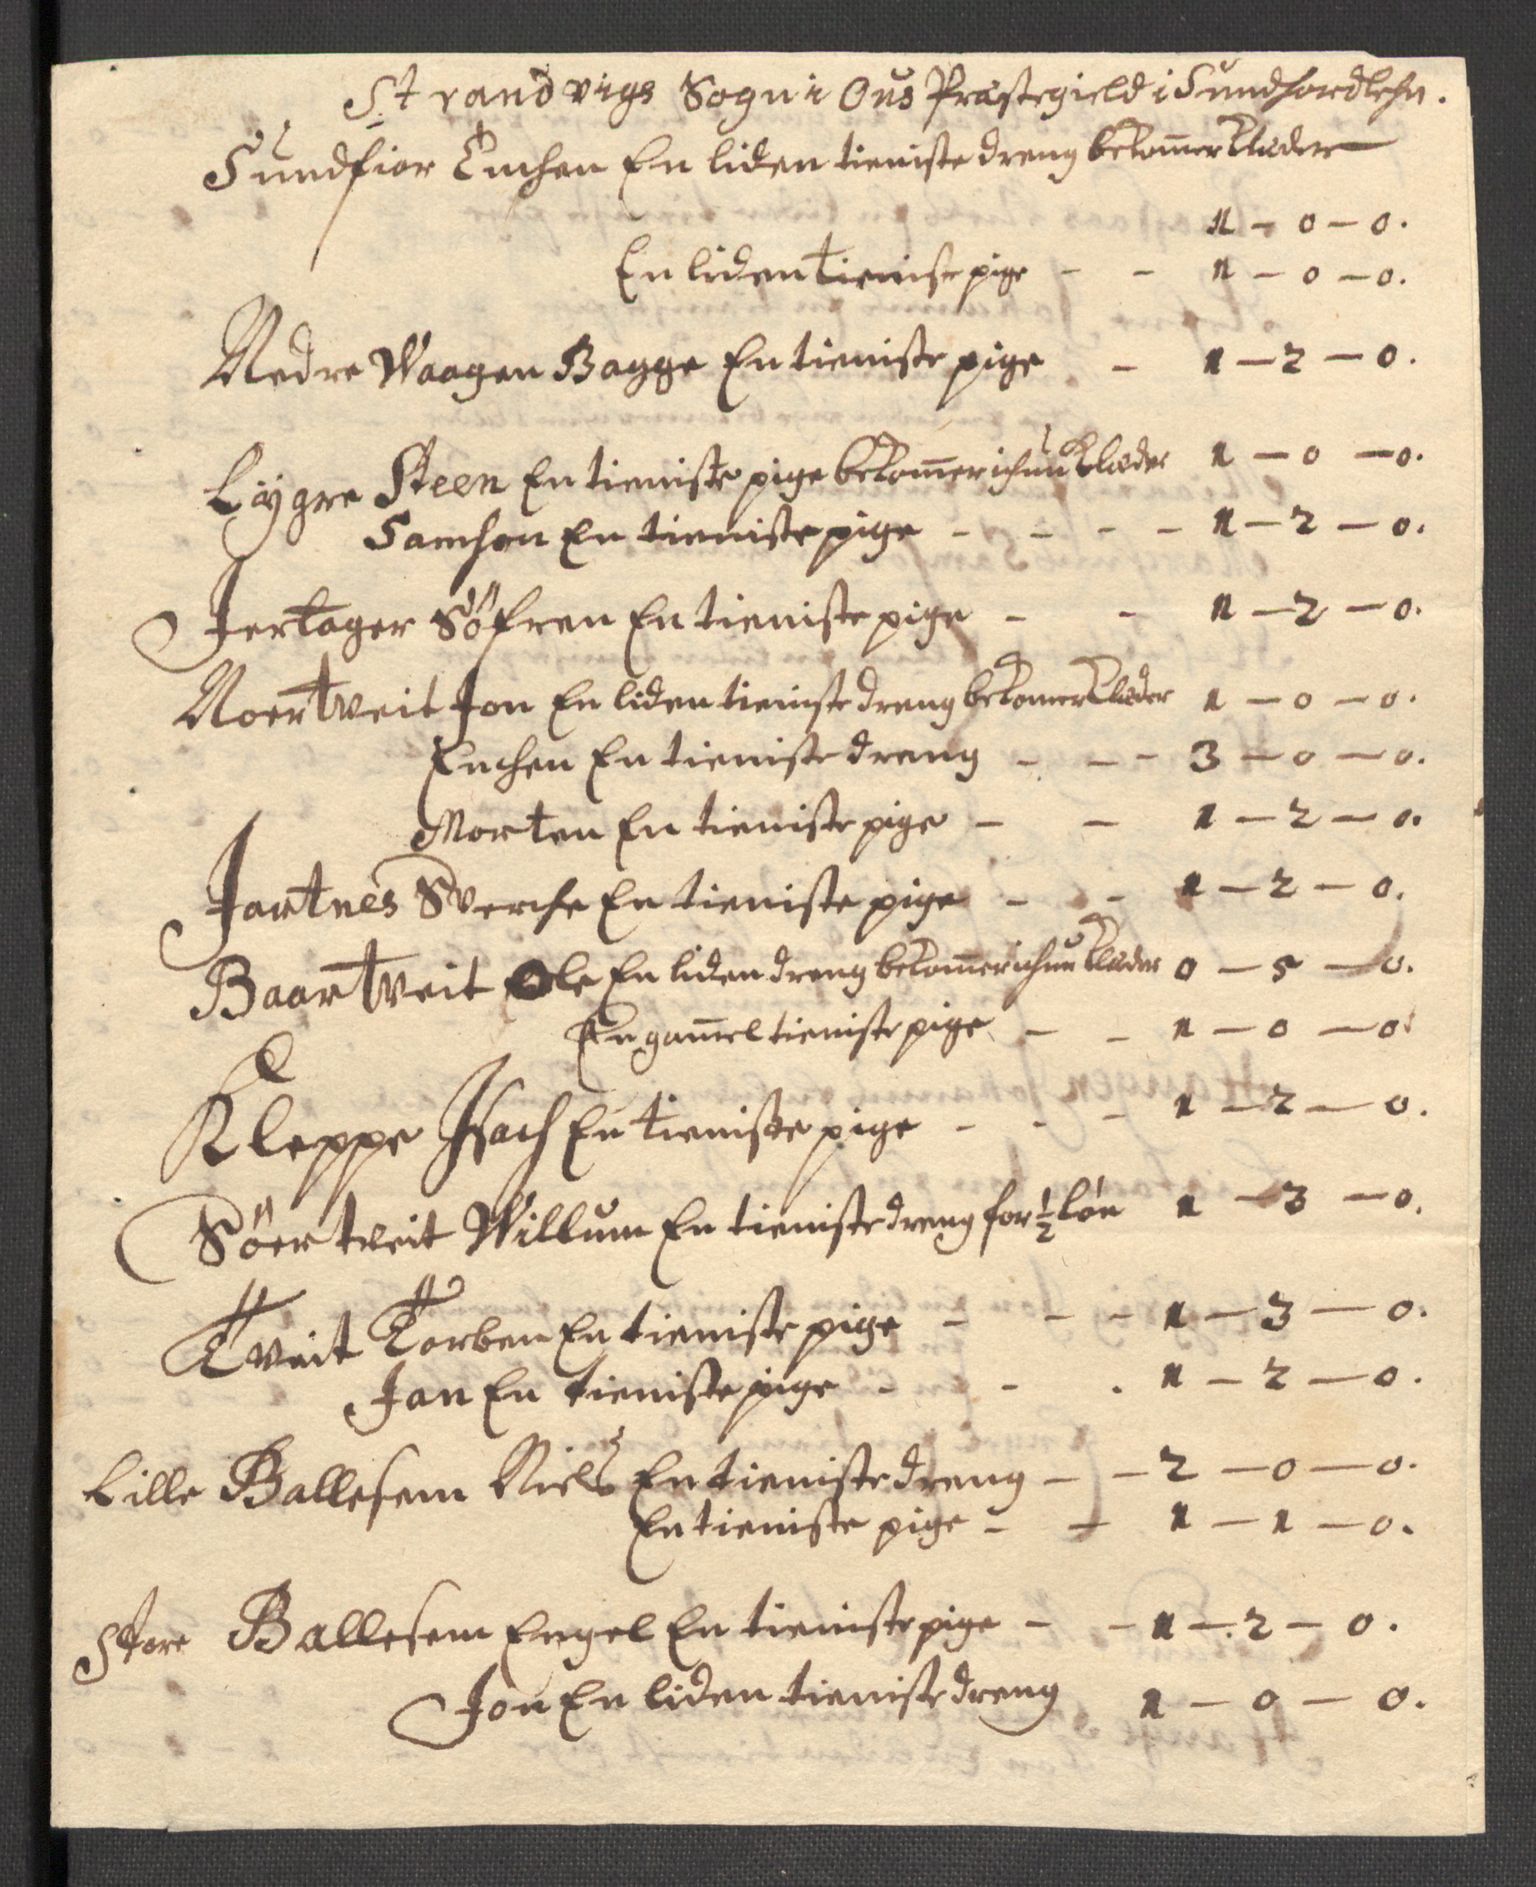 Strandvigs Sogn i Ous Præstegield i Sundhordlehn.
Sundfior Enchen En liden tieniste dreng bekom̄er Klæder
1 – 0 – 0.
En liden tieniste pige – – 1 – 0 – 0.
Nedre Waagen Bagge En tieniste pige – 1 – 2 – 0.
Lygre Steen En tieniste pige bekom̄er ichun Klæder 1 – 0 – 0.
Samson En tieniste pige – – – – 1 – 2 – 0.
Jertager Söfren En tieniste pige – – 1 – 2 – 0.
Noertveit Jon En liden tieniste dreng bekomer Klæder 1 – 0 – 0.
Enchen En tieniste dreng – – – 3 – 0 – 0.
Morten En tieniste pige – – 1 – 2 – 0.
Jartnes Sverche En tieniste pige – – 1 – 2 – 0.
Baartveit Ole En liden dreng bekom̄er ichun Klæder 0 – 5 – 0.
En gam̄el tieniste pige – – 1 – 0 – 0.
Kleppe Isach En tieniste pige – – – 1 – 2 – 0.
Söertveit Willum En tieniste dreng for ½ løn 1 – 3 – 0.
Tveit Torben En tieniste pige – – – 1 – 3 – 0.
Jan En tieniste pige – – . 1 – 2 – 0.
Lille Ballesem Niels En tieniste dreng – – 2 – 0 – 0.
En tieniste pige – – 1 – 1 – 0.
Store Ballesem Engel En tieniste pige – – 1 – 2 – 0.
Jon En liden tieniste dreng 1 – 0 – 0.